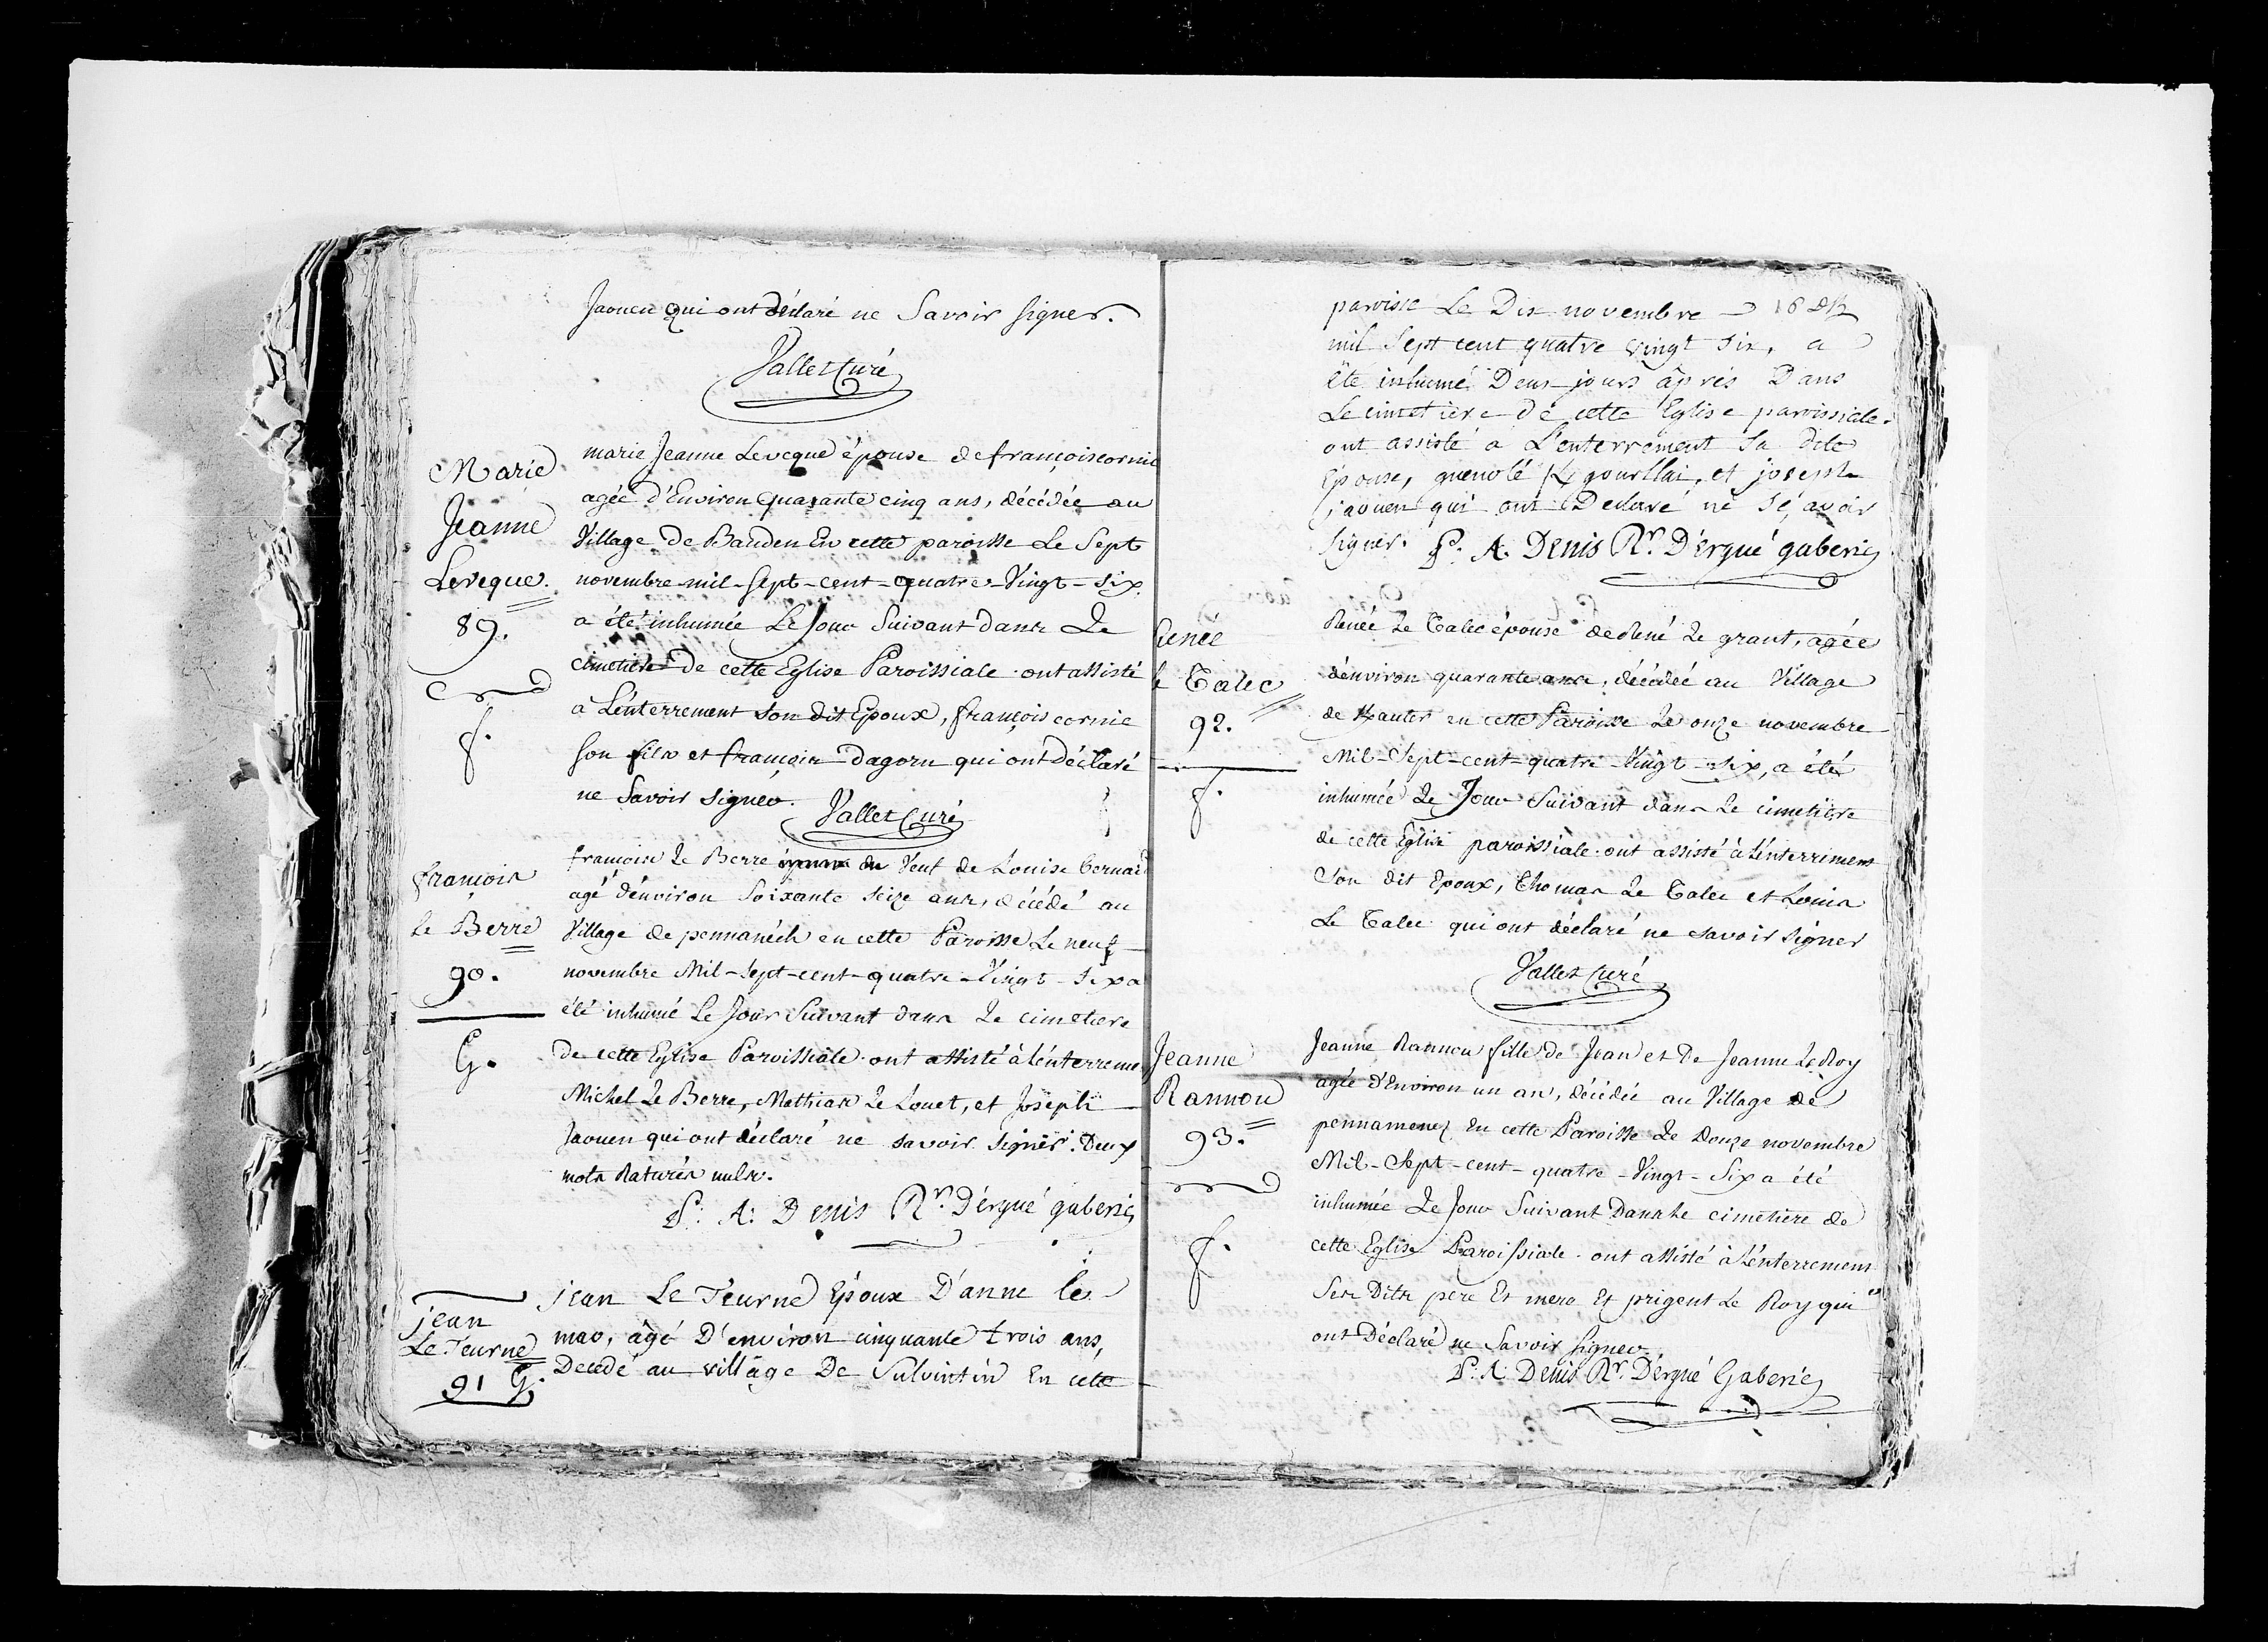 Jaouen qui ont déclaré ne Savoir signer.
Vallet Curé
Marie
Jeanne
Leveque.
89.
f.
marie Jeanne Leveque épouse de françois cornic
agée d'Environ quarante cinq ans, décédée au
Village de Banden En cette paroisse Le Sept
novembre mil-sept-cent-quatre-Vingt-six
a été inhumée Le Jour Suivant dans Le
cimetiere de cette Eglise Paroissiale. ont assisté
a L'enterrement son dit Epoux, françois cornic
son fils et françois Dagorn qui ont Déclaré
ne Savoir signer.
Vallet Curé
françois
le Berre
90.
G.
françois Le Berre Veuf de Louise bernard
agé d'environ Soixante seize ans, décédé au
Village de pennanéch en cette Paroisse Le neuf
novembre Mil-Sept-cent-quatre-Vingt-six a
été inhumé Le Jour Suivant dans Le cimetiere
de cette Eglise Paroissiale. ont assisté à L'enterrement
Michel Le Berre, Mathias Le Louet, et Joseph
Jaouen qui ont déclaré ne savoir signer. Deux
mots Raturés nuls.
P: A: Denis Rr. D'ergué gaberic
jean
Le Teurne
91 G.
jean Le Teurne Epoux D'anne le
mao, âgé D'environ cinquante trois ans,
Decedé au village De Sulvintin En cette
paroisse Le Dix novembre
mil Sept cent quatre vingt six, a
été inhumé Deux jours âprés Dans
Le cimetiere de cette Eglise paroissiale.
ont assisté a L'enterrement Sa dite
Epouse, guenolé Kgourllai, et joseph
jaouen qui ont Declaré ne sçavoir
signer. P. A. Denis Rr. D'ergué gaberic
Renée
le Talec
92.
f.
Renée Le Talec épouse de René Le grant, agée
d'environ quarante ans, décédée au Village
de en cette Paroisse Le onze novembre
Mil-Sept-cent-quatre-Vingt-six, a été
inhumée Le Jour Suivant dans Le cimetiere
de cette Eglise paroissiale. ont assisté à L'enterrement
Son dit Epoux, Thomas Le Talec et Louis
Le Talec qui ont déclaré ne savoir signer
Vallet Curé
Jeanne
Rannou
93.
f.
Jeanne Rannou fille de Jean et De Jeanne Le Roy
agée d'Environ un an, décédée au Village de
pennamenez En cette Paroisse Le Douze novembre
Mil-Sept-cent-quatre-Vingt-Six a été
inhumée Le Jour Suivant Dans Le cimetiere de
cette Eglise Paroissiale. ont assisté à L'enterrement
Ses Dits pere Et mere Et prigent Le Roy qui
ont Déclaré ne Savoir signer.
P. A. Denis Rr. D'ergué Gaberic